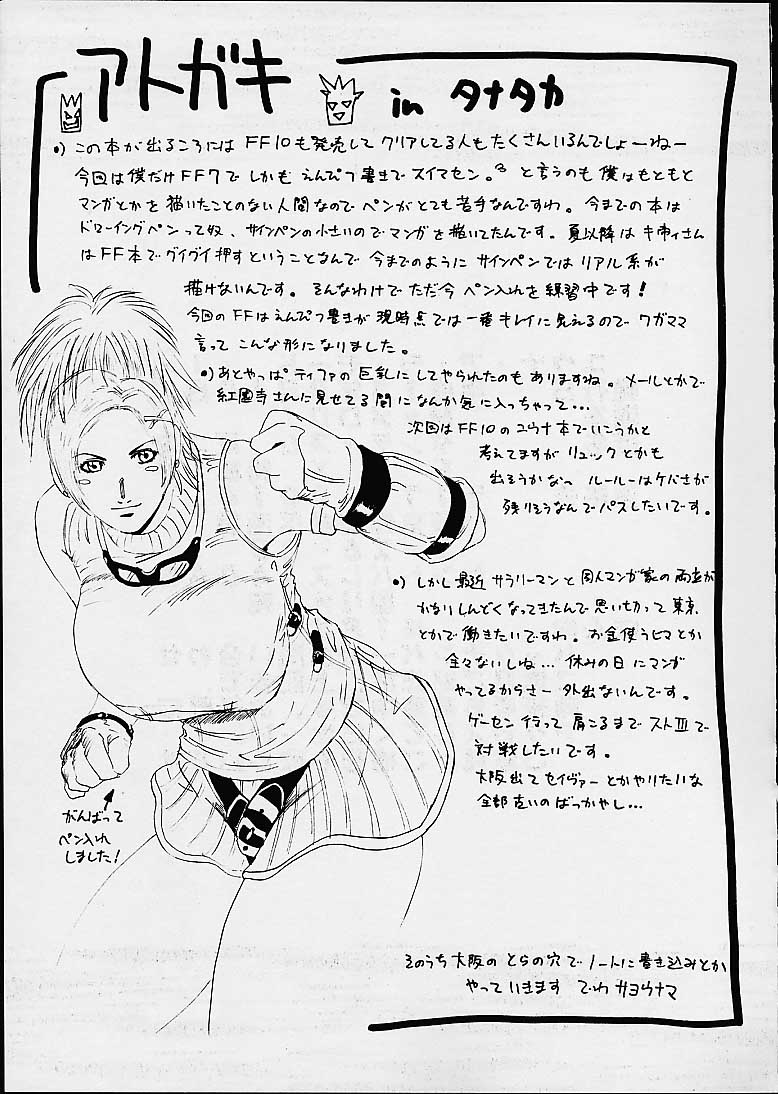 アトガキ
in タナタカ
•) この本が出るころには FF10も発売して クリアしてる人もたくさんいるんでしょーねー
今回は僕だけFF7で しかも えんぴつ書きで スイマセン。 と言うのも 僕はもともと
マンガとかを 描いたことのない人間なので ペンがとても苦手なんですわ。今までの本は
ドローイングペンって奴、サインペンの小さいのでマンガを描いてたんです。夏以降は さんは
FF本でグイグイ押すということなんで 今までのように サインペンでは リアル系が
描けないんです。そんなわけで ただ今 ペン入れを練習中です!
今回のFFはえんぴつ書きが 現時点では一番キレイに見えるので ワガママ
言って こんな形になりました。
•) あとやっぱ ティファの巨乳に してやられたのも ありますね。メールとかで
さんに見せてる間に なんか気に入っちゃって…
次回は FF10のユウナ本でいこうかと
考えてますが リュックとかも
出そうかなっ ルールーはケバさが
残りそうなんで パスしたいです。
•) しかし最近 サラリーマンと同人マンガ家の両立が
かなりしんどくなってきたんで 思い切って 東京
とかで 働きたいですわ。お金使うヒマとか
全々ないしね… 休みの日にマンガ
やってるからさー 外出ないんです。
ゲーセン行って 肩こるまで ストⅢで
対戦したいです。
大阪出て セイヴァーとかやりたいな
全部古いのばっかやし…
がんばって
ペン入れ
しました!
そのうち 大阪の とらの穴で ノートに書き込みとか
やって いきます でわ サヨウナマ